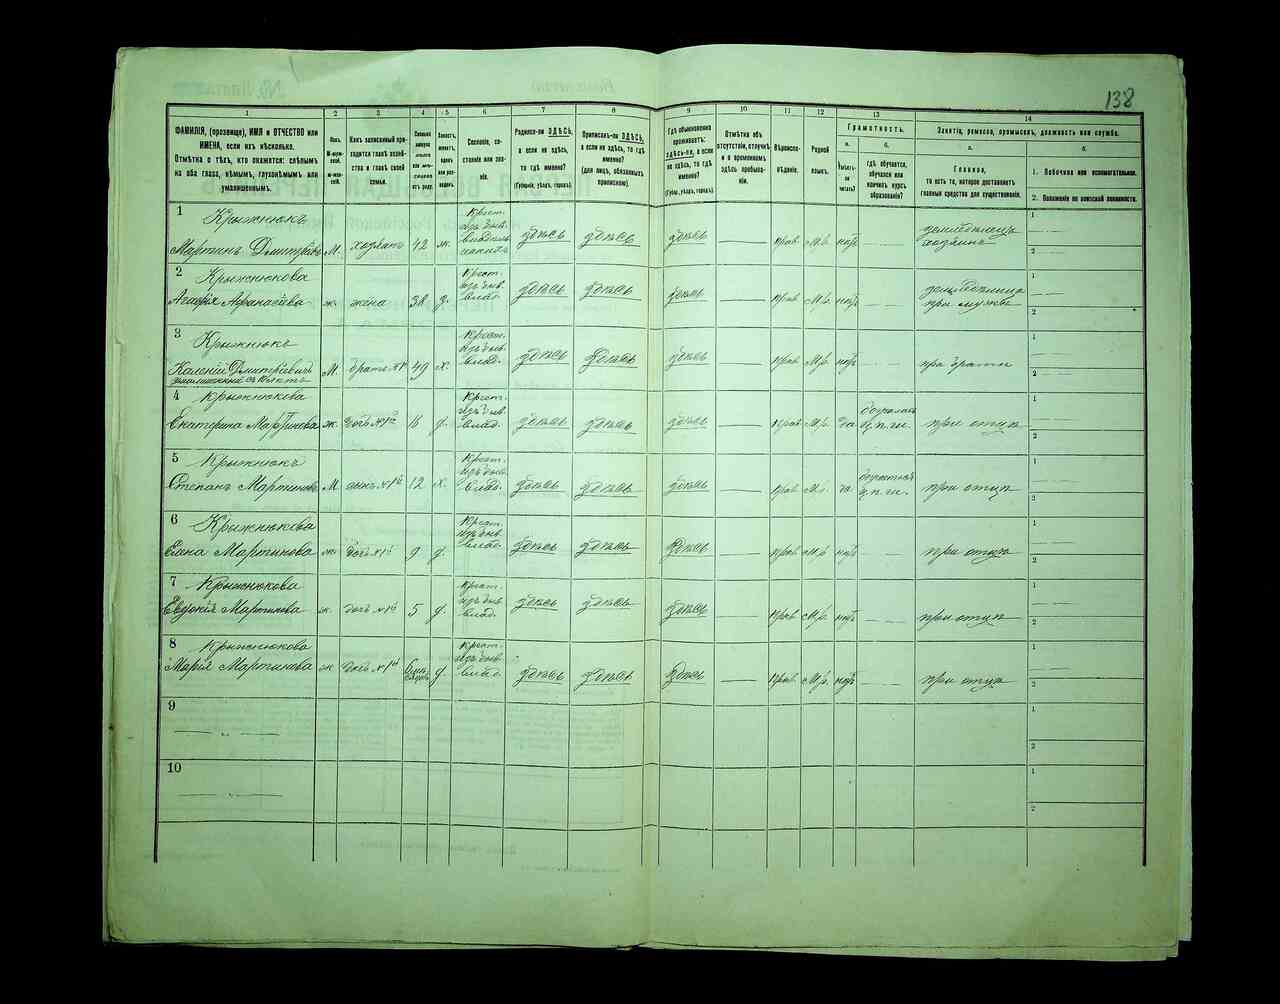 138
1
2
3
4
5
6
7
8
9
10
11
12
13
14
ФАМИЛІЯ, (прозвище), ИМЯ и ОТЧЕСТВО или
ИМЕНА, если ихъ нѣсколько.
Отмѣтка о тѣхъ, кто окажется: слѣпымъ
на оба глаза, нѣмымъ, глухонѣмымъ или
умалишеннымъ.
Полъ.
М-мужской.
Ж-женскій.
Какъ записанный приходится главѣ хозяйства и главѣ своей семьи.
Сколько минуло лѣтъ или мѣсяцевъ отъ роду.
Холостъ, женатъ, вдовъ или разведенъ.
Сословіе, состояніе или званіе.
Родился-ли ЗДѢСЬ,
а если не здѣсь,
то гдѣ именно?
(Губернія, уѣздъ, городъ).
Приписанъ-ли ЗДѢСЬ,
а если не здѣсь, то гдѣ
именно?
(для лицъ, обязанныхъ
припискою).
Гдѣ обыкновенно
проживаетъ:
здѣсь-ли, а если
не здѣсь, то гдѣ
именно?
(Губ., уѣздъ, городъ).
Отмѣтка объ
отсутствіи, отлучкѣ
и о временномъ
здѣсь пребываніи.
Вѣроисповѣданіе.
Родной языкъ.
Грамотность.
а.
Умѣетъ-ли читать?
б.
гдѣ обучается,
обучался или
кончилъ курсъ
образованія?
Занятіе, ремесло, промыселъ, должность или служба.
а.
Главное,
то есть то, которое доставляетъ
главныя средства для существованія.
б.
1. Побочное или вспомогательное.
2. Положеніе по воинской повинности.
1 Крыжнюкъ
Мартинъ Дмитріевъ М. хозяинъ 42 ж. Крест. изъ быв. здѣсь здѣсь здѣсь — прав М.р. нѣтъ
2 Крыжнюкова
Агафія Афанасіева ж. жена 38 з. Крест. изъ быв. влад. здѣсь здѣсь здѣсь — прав М.р. нѣтъ — — при мужѣ
3 Крыжнюкъ
Дмитріевичъ М. братъ №1 49 х. Крест. изъ быв. влад. здѣсь здѣсь здѣсь — прав М.р. нѣтъ — — при братѣ
4 Крыжнюкова
Екатерина Мартинова ж. дочь №1й д. Крест. изъ быв. влад. здѣсь здѣсь здѣсь — прав М.р. да ц.п.ш. при отцѣ
5 Крыжнюкъ
Степанъ Мартиновъ М сынъ №1й 12 х. Крест. изъ быв. влад. здѣсь здѣсь здѣсь — прав М.р. да ц.п.ш. при отцѣ
6 Крыжнюкова
Елена Мартинова ж. дочь №1й 9 д. Крест. изъ быв. влад. здѣсь здѣсь здѣсь — прав М.р. нѣтъ — — при отцѣ
7 Крыжнюкова
Евдокія Мартинова ж. дочь №1й 5 д. Крест. изъ быв. влад. здѣсь здѣсь здѣсь — прав М.р. нѣтъ — — при отцѣ
8 Крыжнюкова
Марія Мартинова ж. дочь №1й д. Крест. изъ быв. влад. здѣсь здѣсь здѣсь — прав М.р. нѣтъ — — при отцѣ
9
10